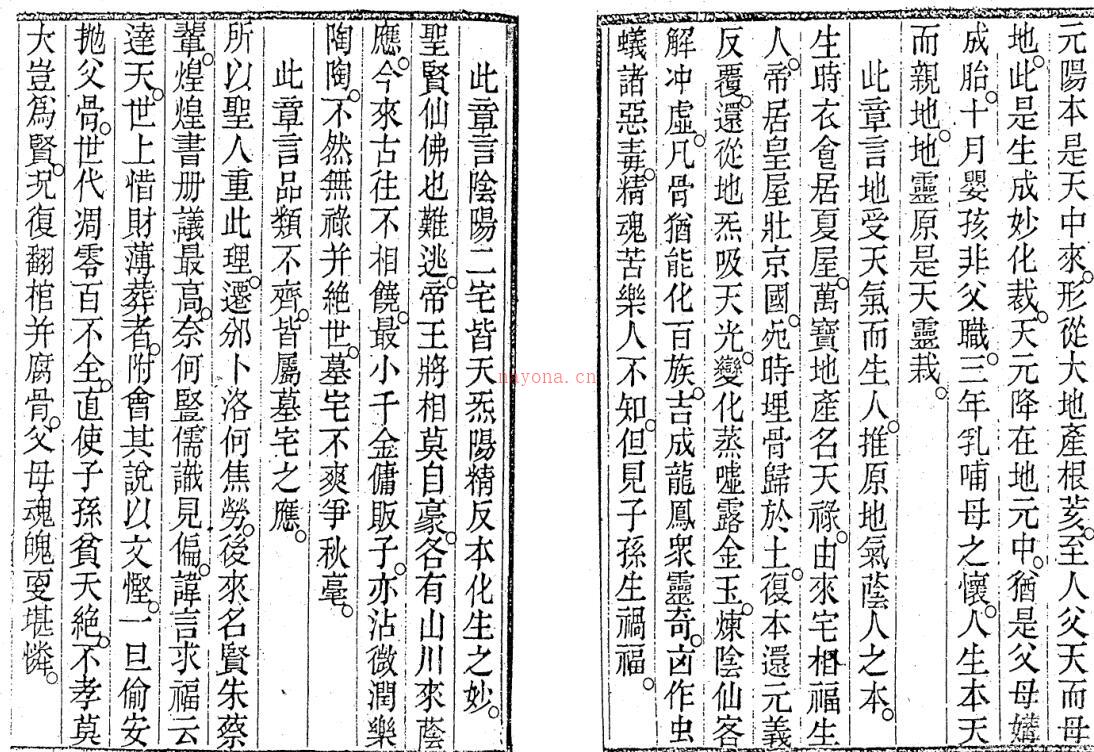 元陽本是天中來。形從大地產根荄。至人父天而母
地。此是生成妙化裁。天元降在地元中。猶是父母媾
成胎。十月嬰孩非父職。三年乳哺母之懷。人生本天
而親地。地靈原是天靈栽。
此章言地受天氣而生人。推原地氣蔭人之本。
生時衣食居夏屋。萬寶地產名天祿。由來宅相福生
人。帝居皇屋壯京國。死時埋骨歸於土。復本還元義
反覆。還從地炁吸天光。變化蒸噓露金玉。煉陰仙客
解冲虛。凡骨猶能化百族。吉成龍鳳衆靈奇。凶作虫
蟻諸惡毒。精魂苦樂人不知。但見子孫生禍福。
此章言陰陽二宅皆天炁陽精反本化生之妙。
聖賢仙佛也難逃。帝王將相莫自豪。各有山川來蔭
應。今來古往不相饒。最小千金傭販子。亦沾微潤樂
陶陶。不然無祿并絕世。墓宅不爽爭秋毫。
此章言品類不齊。皆屬墓宅之應。
所以聖人重此理。遷邠卜洛何焦勞。後來名賢朱蔡
輩。煌煌書册議最高。奈何豎儒識見偏。諱言求福云
達天。世上惜財薄葬者。附會其說以文慳。一旦偷安
拋父骨。世代凋零百不全。直使子孫貧夭絕。不孝莫
大豈為賢。况復翻棺并腐骨。父母魂魄更堪憐。
nayona.cn